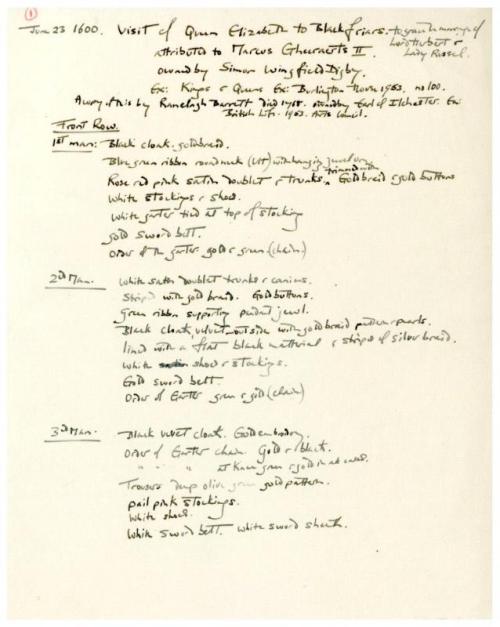 1
June 23 1600. Visit of Queen Elizabeth to Blackfriars. to grace the marriage of
Lord Herbert &
Lady Russel.
attributed to Marcus Gheeraerts II.
owned by Simon Wingfield Digby.
Ex: Kings & Queens Ex: Burlington House 1953. no 100.
A copy of this by Ranelagh Barrett died 1768. owned by Earl of Ilchester. Ex:
British Life. 1953. Arts Council.
Front Row.
1st man: Black cloak. gold braid.
Blue green ribbon round neck with hanging jewel on
Rose red pink satin doublet & trunks, trimmed with Gold braid & gold buttons
White stockings & shoes.
White garter tied at top of stocking
gold sword belt.
Order of the garter gold & green (chain)
2nd Man. White satin doublet trunks & canions.
Striped with gold braid. Gold buttons.
Green ribbon supporting pendant jewel.
Black cloak, velvet outside with gold braid pattern & pearls.
lined with a flat black material & stripes of silver braid.
White shoes & stockings.
Gold sword belt.
Order of Garter green & gold (chain)
3rd Man. Black velvet cloak. Gold embroidery.
Order of Garter chain. Gold & black.
" " " at knee green & gold
Trousers deep olive green gold pattern.
pail pink stockings.
White shoes.
White sword belt. White sword sheath.